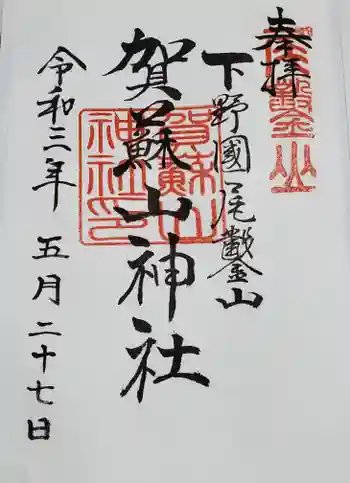 奉拝
下野國尾鑿山
賀蘇山神社
令和三年 五月二十七日
賀蘇山神社印